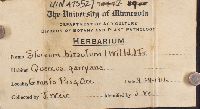 The University of Minnesota
DEPARTMENT OF AGRICULTURE
DIVISION OF BOTANY AND PLANT PATHOLOGY
HERBARIUM
Name Stereum hirsutum (Willd) Fr.
Matrix Quercus garryana
Locality Grants Pass, Ore.
Collected by J. Weir Identified by J. Weir